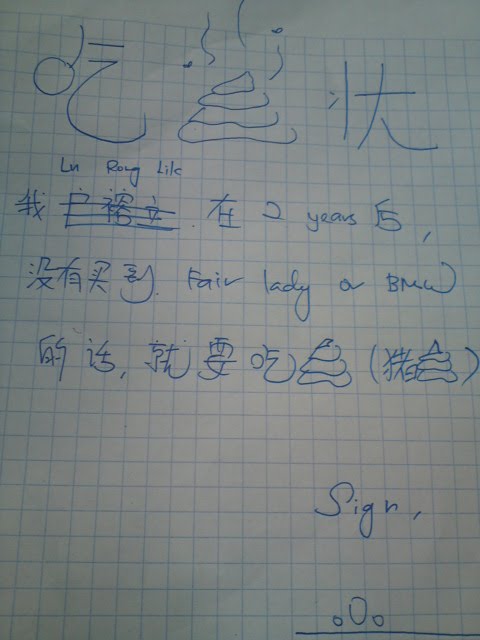 吃 状
Lu Rong Lik
我 在 2 years 后,
没有买到 Fair lady or BMW
的话, 就要吃 (猪)
Sign,